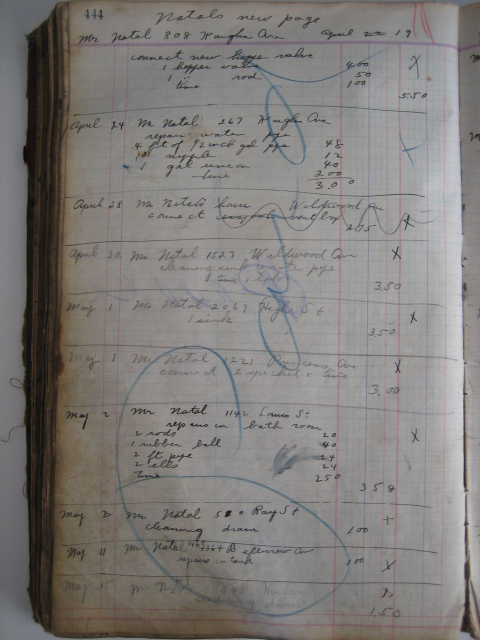 444
Natals new page
Mr Natal 808 Vaughn Ave April 22 19
connect new hopper valve
1 hopper valve 400
1 " rod 50
time 100
5.50
April 24 Mr Natal 267 Vaughn Ave
repair water pipe
4 ft of 1/2 inch gal pipe 48
nipple 12
1 gal union 40
time 200
3.00
April 28 Mr Natals house Wildwood Ave
connect
April 30 Mr Natal 1527 Wildwood Ave
cleaning sink waste pipe
time
3.50
May 1 Mr Natal St
1 sink
3.50
May 1 Mr Natal 1221 Princess Ave
connect time
3.00
May 2 Mr Natal 1142 Louis St
repairs in bath room
2 rods 20
1 rubber ball 40
2 ft pipe 24
2 ells 24
time 250
3.58
May 2 Mr Natal Ray St
cleaning drain 100
May 11 Mr Natal Bellview Ave
repairs in tank 100
May 15 Mr Natal
cleaning drain
1.50